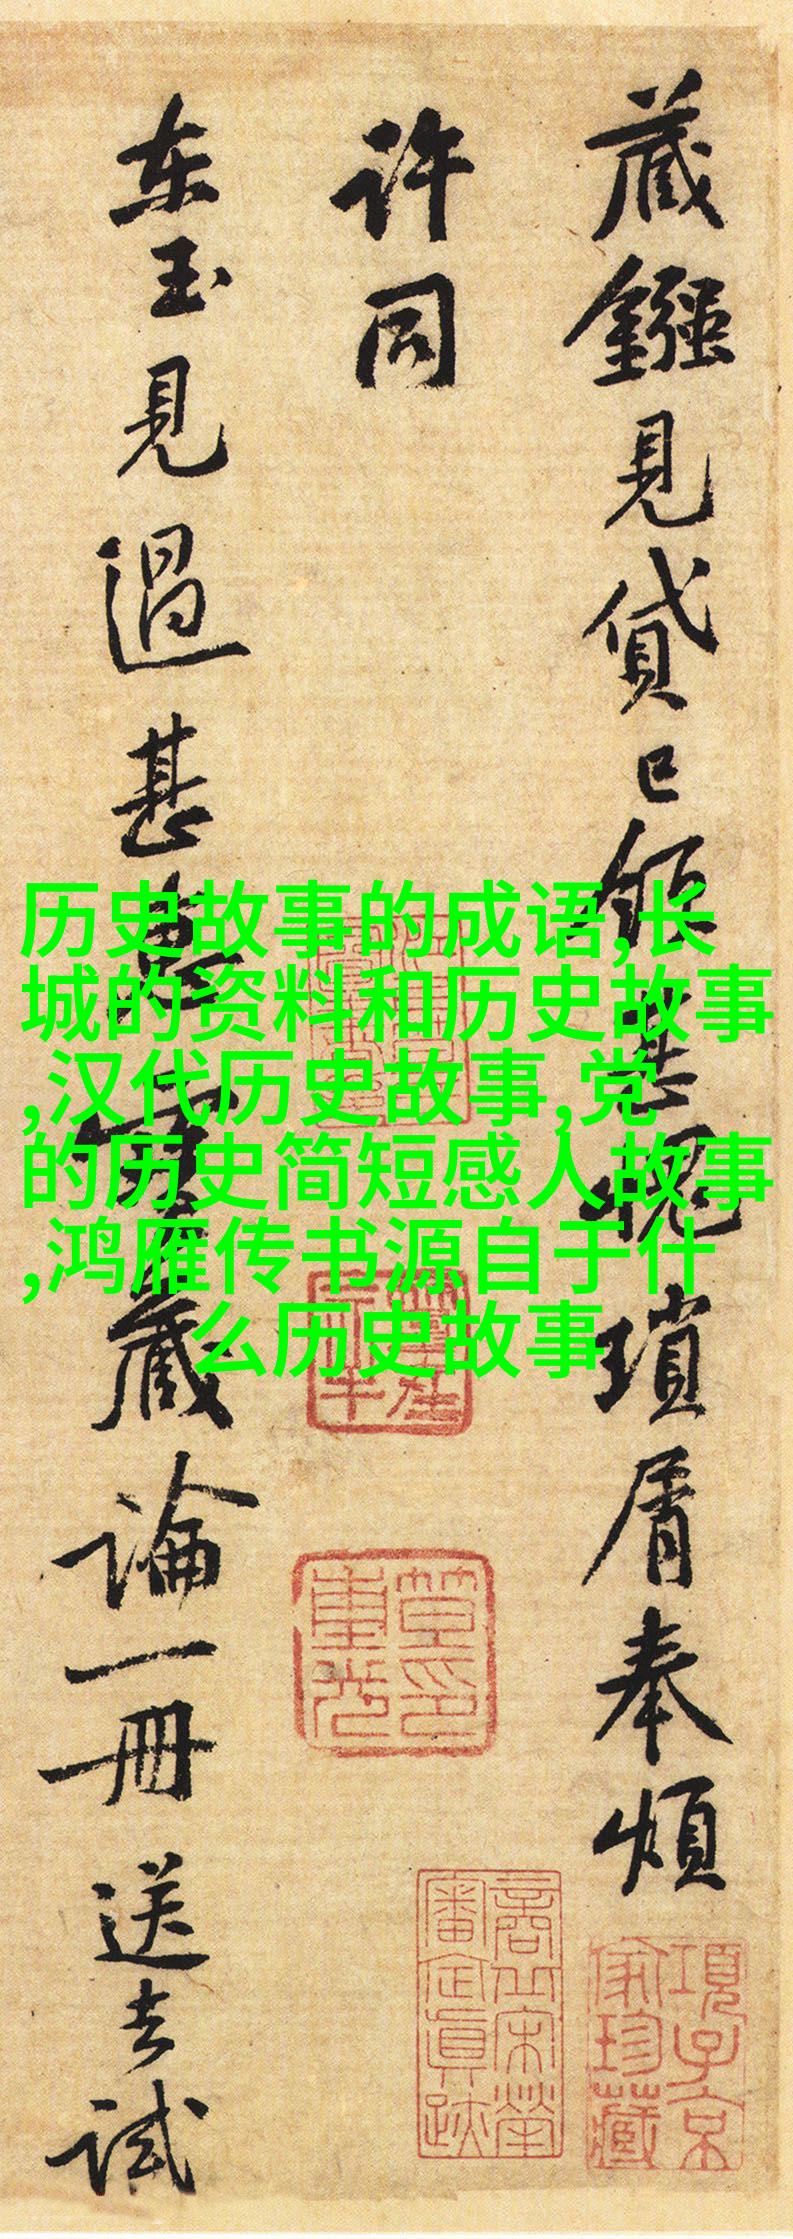 藏鏹見貸已領甚愧瑣屑奉煩
许同
东玉見過甚
藏論一冊送去試
历史故事的成语,长
城的资料和历史故事
,汉代历史故事,党
的历史简短感人故事
,鸿雁传书源自于什
么历史故事
項子京
家珍藏